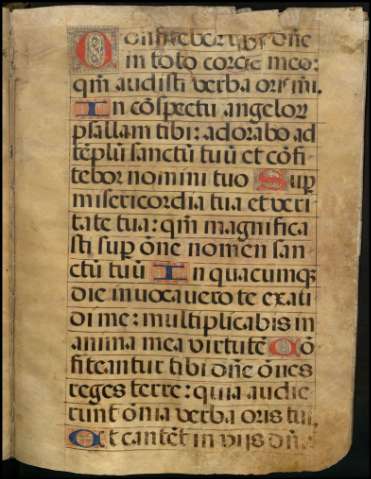 Confitebor tibi dñe
in toto corde meo:
qm̃ audisti verba oris mi.
In cõspectu angelor
psallam tibi: adorabo ad
tẽplũ sanctũ tuũ et cõfi
tebor nomini tuo Sup
misericordia tua et veri
tate tua: qm̃ magnifica
sti sup õne nomen san
ctũ tuũ In quacumq
die invocavero te exau
di me: multiplicabis in
anima mea virtutẽ Cõ
fiteantur tibi dñe õnes
reges terre: quia audie
runt õnia verba oris tui.
Et cantẽt in vijs dñi